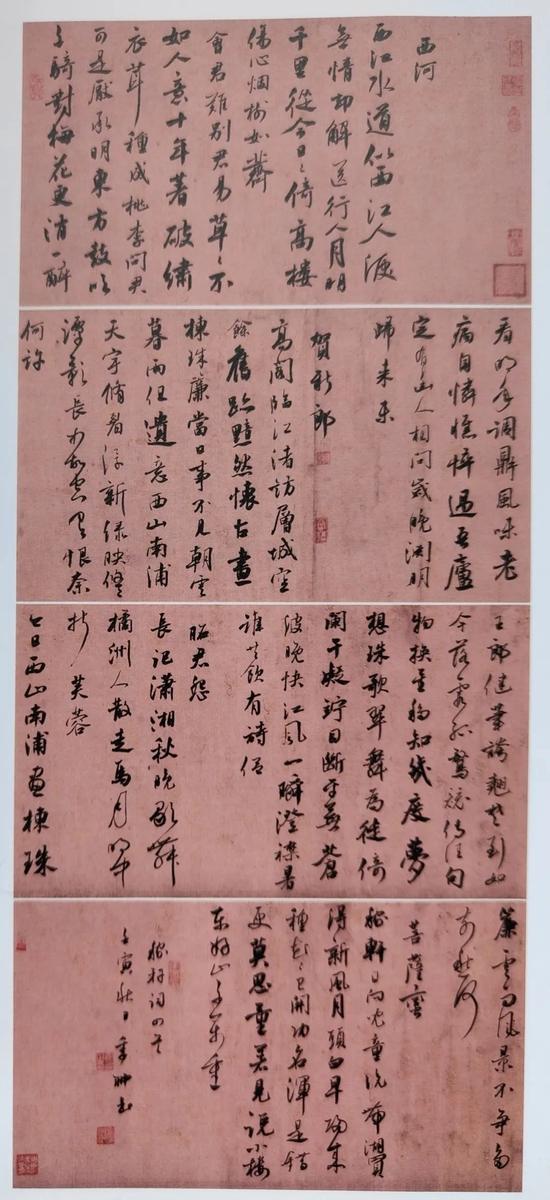 西河
西江水道似西江人淚
無情却解送行人月明
千里從今日日倚高樓
傷心烟樹如薺
會君難別君易草草不
如人意十年著破繡
衣茸種成桃李問君
可是厭承明東方鼓吹
千騎對梅花更消一醉
看明年調鼎風味老
病自憐憔悴過吾廬
定有幽人相問歲晚淵明
歸來未
賀新郎
高閣臨江渚訪層城空
餘舊跡黯然懷古畫
棟珠廉當日事不見朝雲
暮雨但遺意西山南浦
天宇脩眉浮新綠映悠
潭影長如故空有恨奈
何許
王郎健筆誇翹楚到如
今落霞孤鶩競傳佳句
物換星移知幾度夢
想珠歌翠舞為徙倚
闌干凝竚目斷平蕪蒼
波晚快江風一瞬澄襟暑
誰共飲有詩侶
昭君怨
長記瀟湘秋晚歌舞
橘洲人散走馬月明中
折芙蓉
今日西山南浦畫棟珠
簾雲雨風景不爭多
奈愁何
菩薩蠻
稼軒日向兒童說帶湖買
得新風月頭白早歸來
種花花已開功名渾是錯
更莫思量着見說小樓
東好山千萬重
稼軒詞四首
壬寅秋日 書